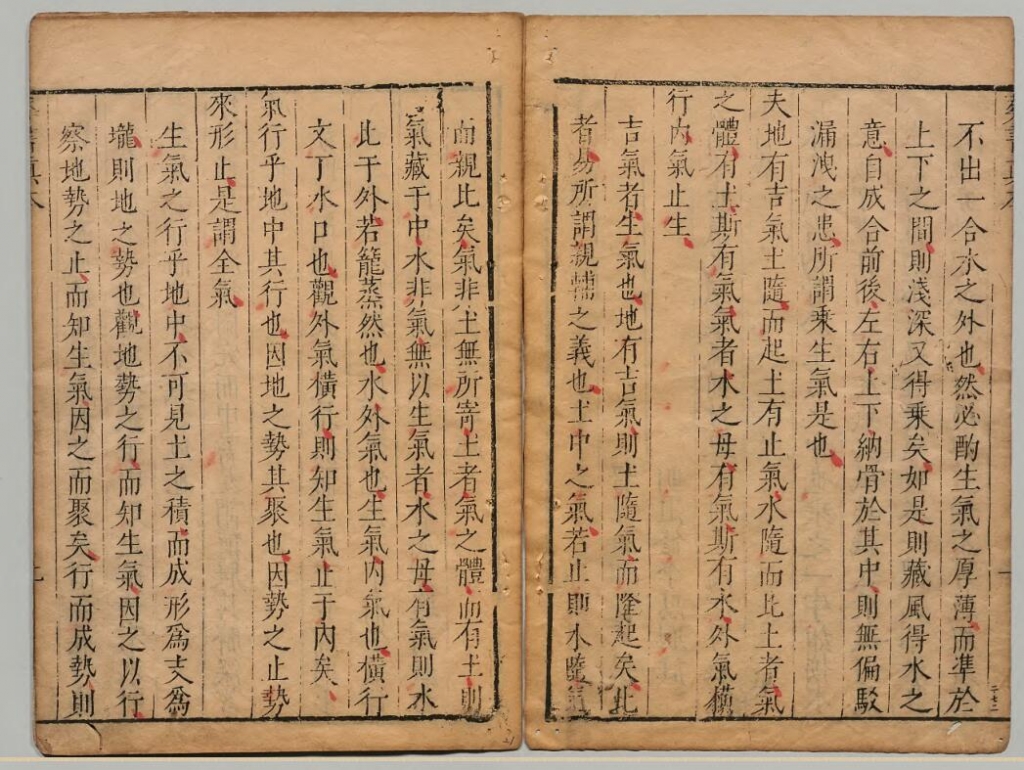 不出一合水之外也然必酌生氣之厚薄而準於
上下之間則淺深又得乘矣如是則藏風得水之
意自成合前後左右上下納骨於其中則無偏駁
漏洩之患所謂乘生氣是也
夫地有吉氣土隨而起土有止氣水隨而比土者氣
之體有土斯有氣氣者水之母有氣斯有水外氣橫
行內氣止生
吉氣者生氣也地有吉氣則土隨氣而隆起矣此
者易所謂親輔之義也土中之氣若止則水隨氣
而親比矣氣非土無所寄土者氣之體而有土則
氣藏于中水非氣無以生氣者水之母有氣則水
比于外若籠蒸然也水外氣也生氣內氣也橫行
文丁水口也觀外氣橫行則知生氣止于內矣
氣行乎地中其行也因地之勢其聚也因勢之止勢
來形止是謂全氣
生氣之行乎地中不可見土之積而成形為支為
壠則地之勢也觀地勢之行而知生氣因之以行
察地勢之止而知生氣因之而聚矣行而成勢則